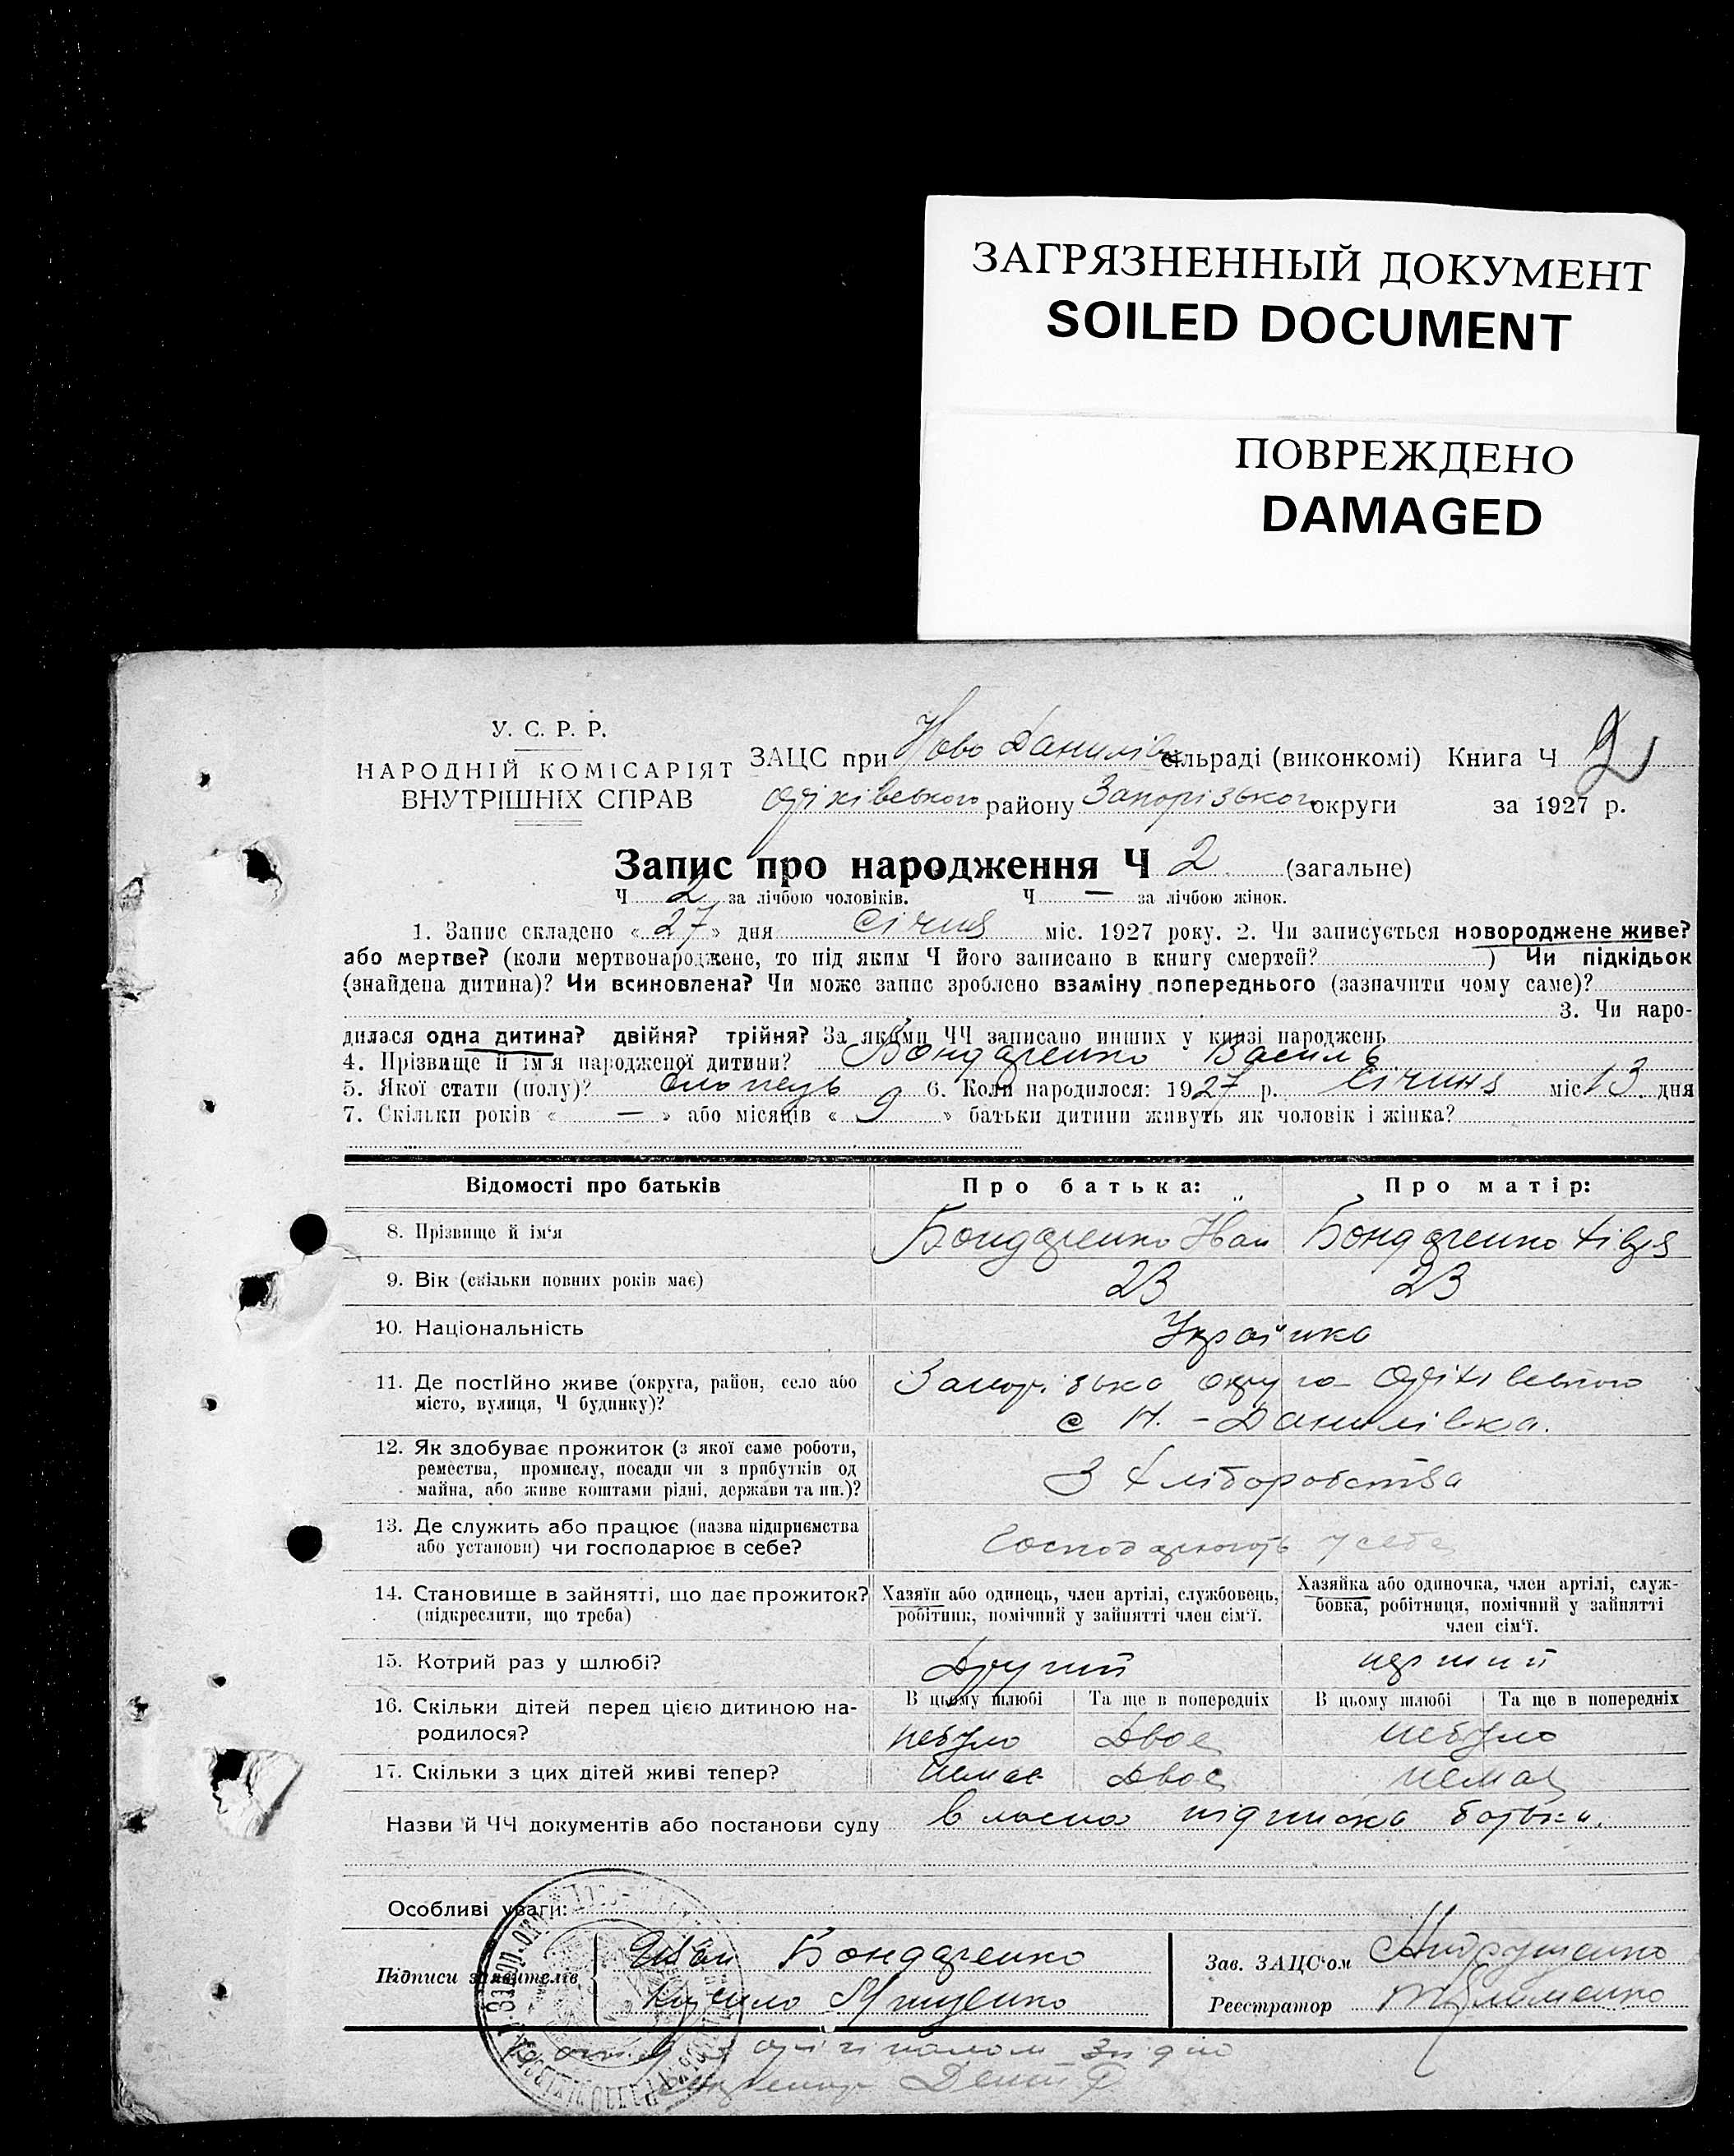 ЗАГРЯЗНЕННЫЙ ДОКУМЕНТ
SOILED DOCUMENT
ПОВРЕЖДЕНО
DAMAGED
У. С. Р. Р.
НАРОДНІЙ КОМІСАРІЯТ
ВНУТРІШНІХ СПРАВ
ЗАЦС при Ново Данилів сільраді (виконкомі) Книга Ч 2
Оріхівського району Запорізького округи за 1927 р.
Запис про народження Ч 2 (загальне)
Ч 2 за лічбою чоловіків. Ч — за лічбою жінок.
1. Запис складено «27» дня січня міс. 1927 року. 2. Чи записується новороджене живе?
або мертве? (коли мертвонароджене, то під яким Ч його записано в книгу смертей? ) Чи підкідьок
(знайдена дитина)? Чи всиновлена? Чи може запис зроблено взаміну попереднього (зазначити чому саме)?
3. Чи наро-
дилася одна дитина? двійня? трійня? За якими ЧЧ записано инших у книзі народжень
4. Прізвище й ім'я народженої дитини? Бондаренко Василь
5. Якої стати (полу)? хлопець 6. Коли народилося: 1927 р. січня міс 13 дня
7. Скільки років « — » або місяців « 9 » батьки дитини живуть як чоловік і жінка?
Відомості про батьків Про батька: Про матір:
8. Прізвище й ім'я Бондаренко Іван Бондаренко Хівря
9. Вік (скільки повних років має) 23 23
10. Національність Українка
11. Де постійно живе (округа, район, село або
місто, вулиця, Ч будинку)?
Запорізька округа Оріхівського
с Н.-Данилівка.
12. Як здобуває прожиток (з якої саме роботи,
ремества, промислу, посади чи з прибутків од
майна, або живе коштами рідні, держави та ин.)?
З Хліборобства
13. Де служить або працює (назва підприємства
або установи) чи господарює в себе?
Господарюють у себе
14. Становище в зайнятті, що дає прожиток?
(підкреслити, що треба)
Хазяїн або одинець, член артілі, службовець,
робітник, помічний у зайнятті член сім'ї.
Хазяйка або одиночка, член артілі, служ-
бовка, робітниця, помічний у зайнятті
член сім'ї.
15. Котрий раз у шлюбі? Другий перший
16. Скільки дітей перед цією дитиною на-
родилося?
В цьому шлюбі Та ще в попередніх В цьому шлюбі Та ще в попередніх
небуло Двоє небуло
17. Скільки з цих дітей живі тепер? немає Двоє немає
Назви й ЧЧ документів або постанови суду власна підписка батьки.
Особливі уваги:
Підписи заявителів Іван Бондаренко
Кирило Мищенко
Зав. ЗАЦС'ом Андрущенко
Реєстратор
з оригіналом згідно